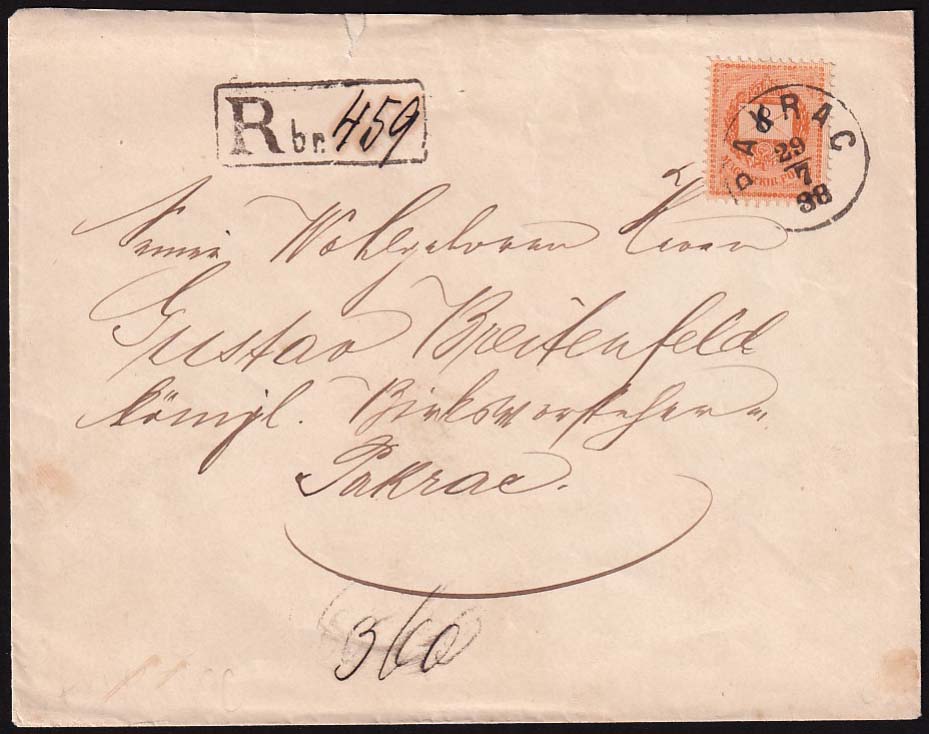 R br. 459
PAKRAC
8
29
7
88
MAGY. KIR. POSTA
Seiner Wohlgeboren Herrn
Gustav Breitenfeld
königl. Bezirksvorsteher
Pakrac.
360